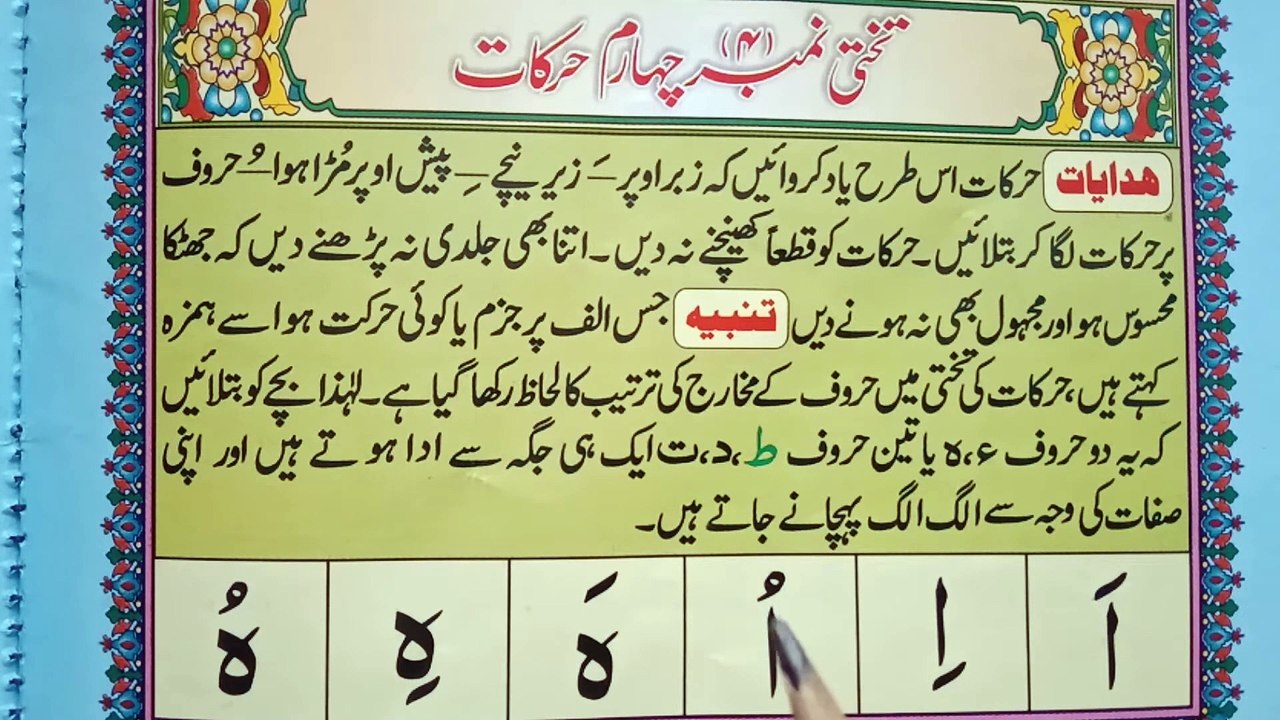 تختی نمبر (۴) چہارم حرکات
ھدایات حرکات اس طرح یاد کروائیں کہ زبر اوپر ـَ زیر نیچے ـِ پیش اوپر مُڑا ہوا ـُ حروف
پر حرکات لگا کر بتلائیں۔ حرکات کو قطعاً کھینچنے نہ دیں۔ اتنا بھی جلدی نہ پڑھنے دیں کہ جھٹکا
محسوس ہو اور مجہول بھی نہ ہونے دیں تنبیہ جس الف پر جزم یا کوئی حرکت ہو اسے ہمزہ
کہتے ہیں، حرکات کی تختی میں حروف کے مخارج کی ترتیب کا لحاظ رکھا گیا ہے۔ لہٰذا بچے کو بتلائیں
کہ یہ دو حروف ء،ہ یا تین حروف ط،د،ت ایک ہی جگہ سے ادا ہوتے ہیں اور اپنی
صفات کی وجہ سے الگ الگ پہچانے جاتے ہیں۔
اَ اِ اُ ہَ ہِ ہُ